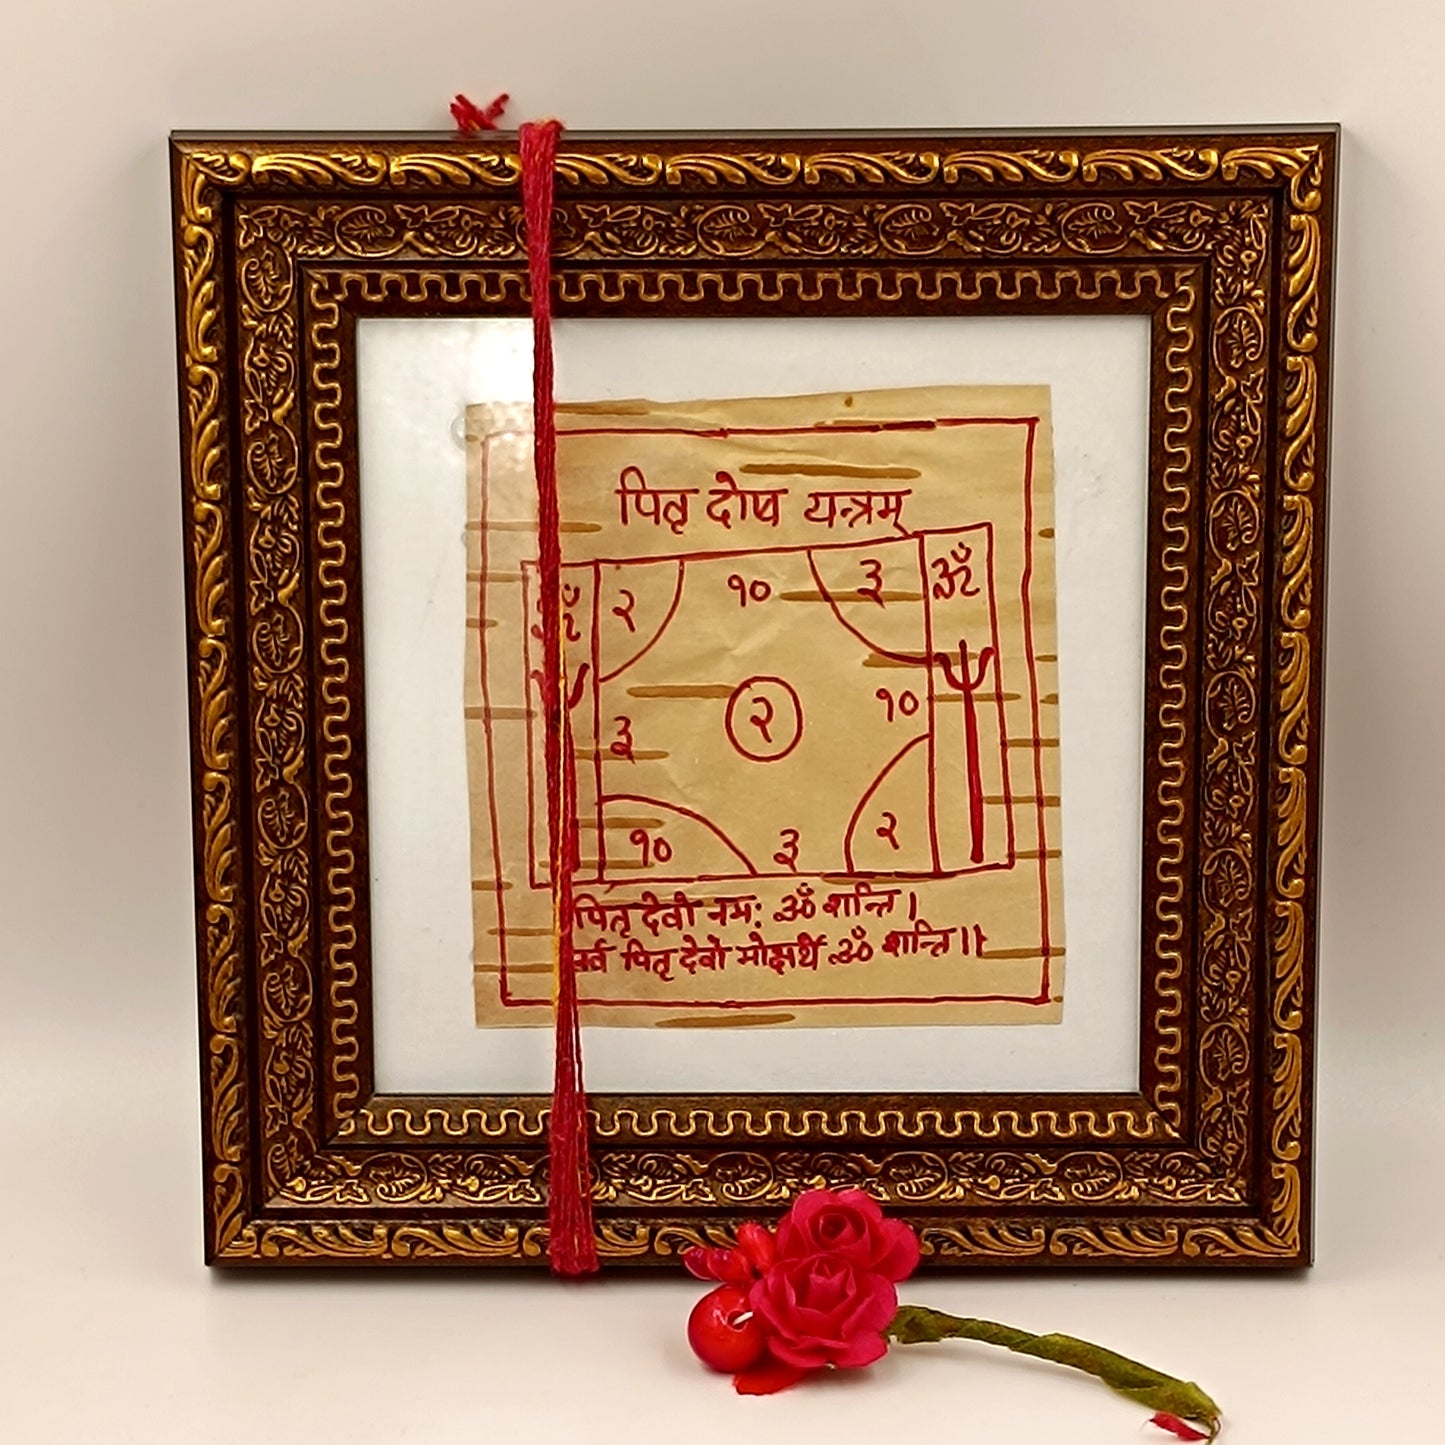 पितृ दोष यन्त्रम्
ॐ २ १० ३ ॐ
३ २ १०
१० ३ २
पितृ देवो नमः ॐ शान्ति।
सर्व पितृ देवो मोक्षार्थ ॐ शान्ति॥